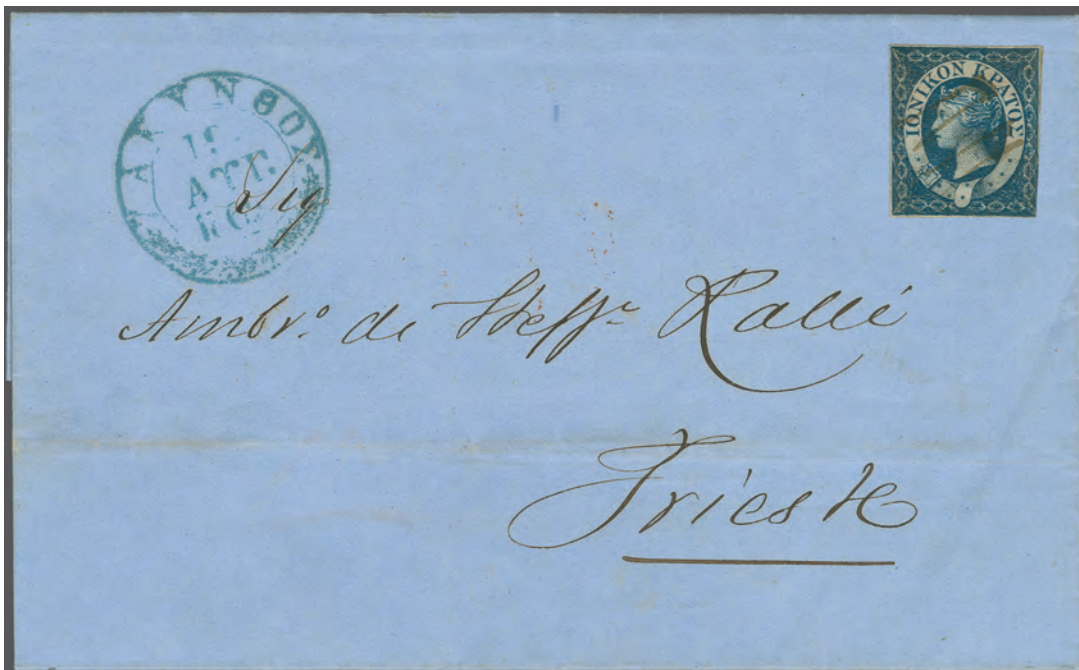 ΖΑΚΥΝΘΟΣ
ΑΥΓ.
ΙΟΝΙΚΟΝ ΚΡΑΤΟΣ
Sig.
Ambr.o di Steff.o Ralli
Trieste